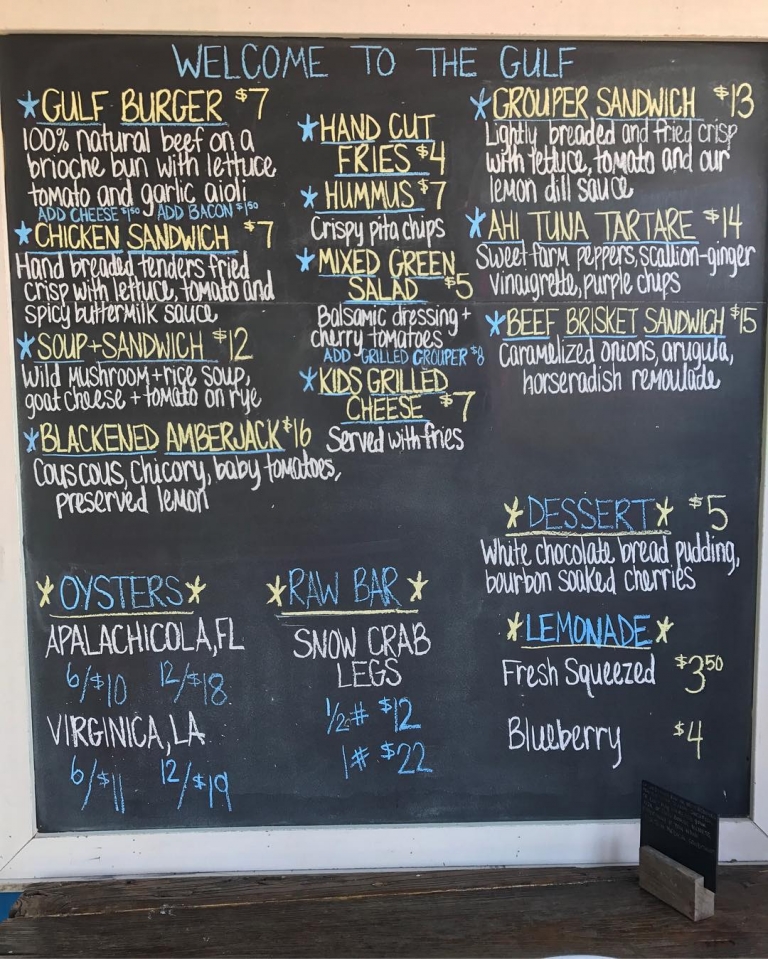 WELCOME TO THE GULF
GULF BURGER $7
100% natural beef on a
brioche bun with lettuce
tomato and garlic aioli
ADD CHEESE $1.50 ADD BACON $1.50
CHICKEN SANDWICH $7
Hand breaded tenders fried
crisp with lettuce, tomato and
spicy buttermilk sauce
SOUP+SANDWICH $12
Wild mushroom+rice soup,
goat cheese + tomato on rye
BLACKENED AMBERJACK $16
Couscous, Chicory, baby tomatoes,
preserved lemon
HAND CUT
FRIES $4
HUMMUS $7
Crispy pita chips
MIXED GREEN
SALAD $5
Balsamic dressing +
cherry tomatoes
ADD GRILLED GROUPER $8
KIDS GRILLED
CHEESE $7
Served with fries
GROUPER SANDWICH $13
Lightly breaded and fried crisp
with lettuce, tomato and our
lemon dill sauce
AHI TUNA TARTARE $14
Sweet farm peppers, scallion-ginger
vinaigrette, purple chips
BEEF BRISKET SANDWICH $15
Caramelized onions, arugula,
horseradish remoulade
OYSTERS
APALACHICOLA, FL
6/$10 12/$18
VIRGINICA, LA
6/$11 12/$19
RAW BAR
SNOW CRAB
LEGS
1/2# $12
1# $22
DESSERT $5
White chocolate bread pudding,
bourbon soaked cherries
LEMONADE
Fresh Squeezed $3.50
Blueberry $4